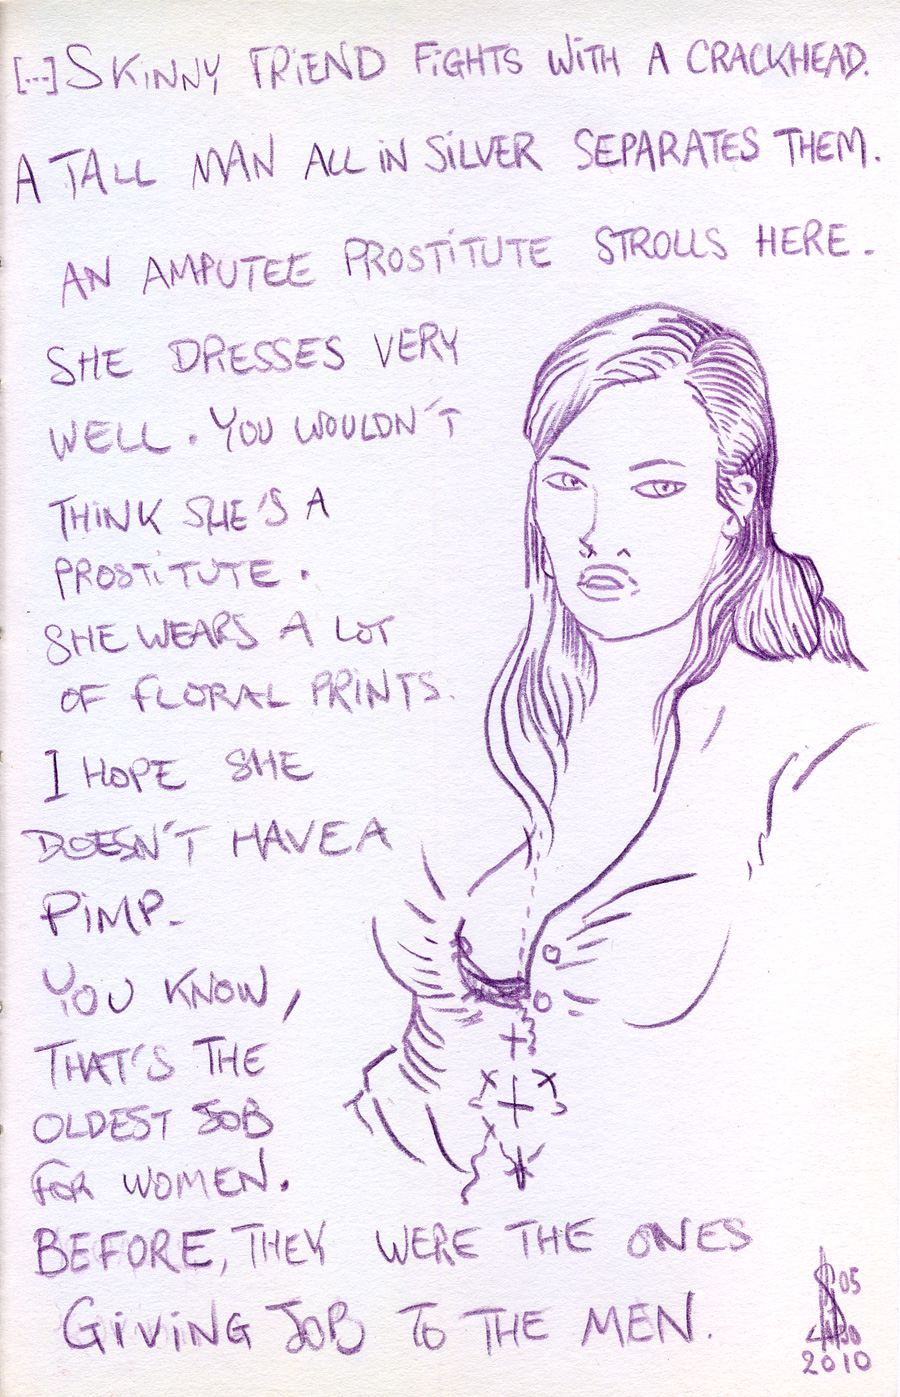 [...] SKINNY FRIEND FIGHTS WITH A CRACKHEAD.
A TALL MAN ALL IN SILVER SEPARATES THEM.
AN AMPUTEE PROSTITUTE STROLLS HERE.
SHE DRESSES VERY
WELL. YOU WOULDN'T
THINK SHE'S A
PROSTITUTE.
SHE WEARS A LOT
OF FLORAL PRINTS.
I HOPE SHE
DOESN'T HAVE A
PIMP.
YOU KNOW,
THAT'S THE
OLDEST JOB
FOR WOMEN.
BEFORE, THEY WERE THE ONES
GIVING JOB TO THE MEN.
05
2010